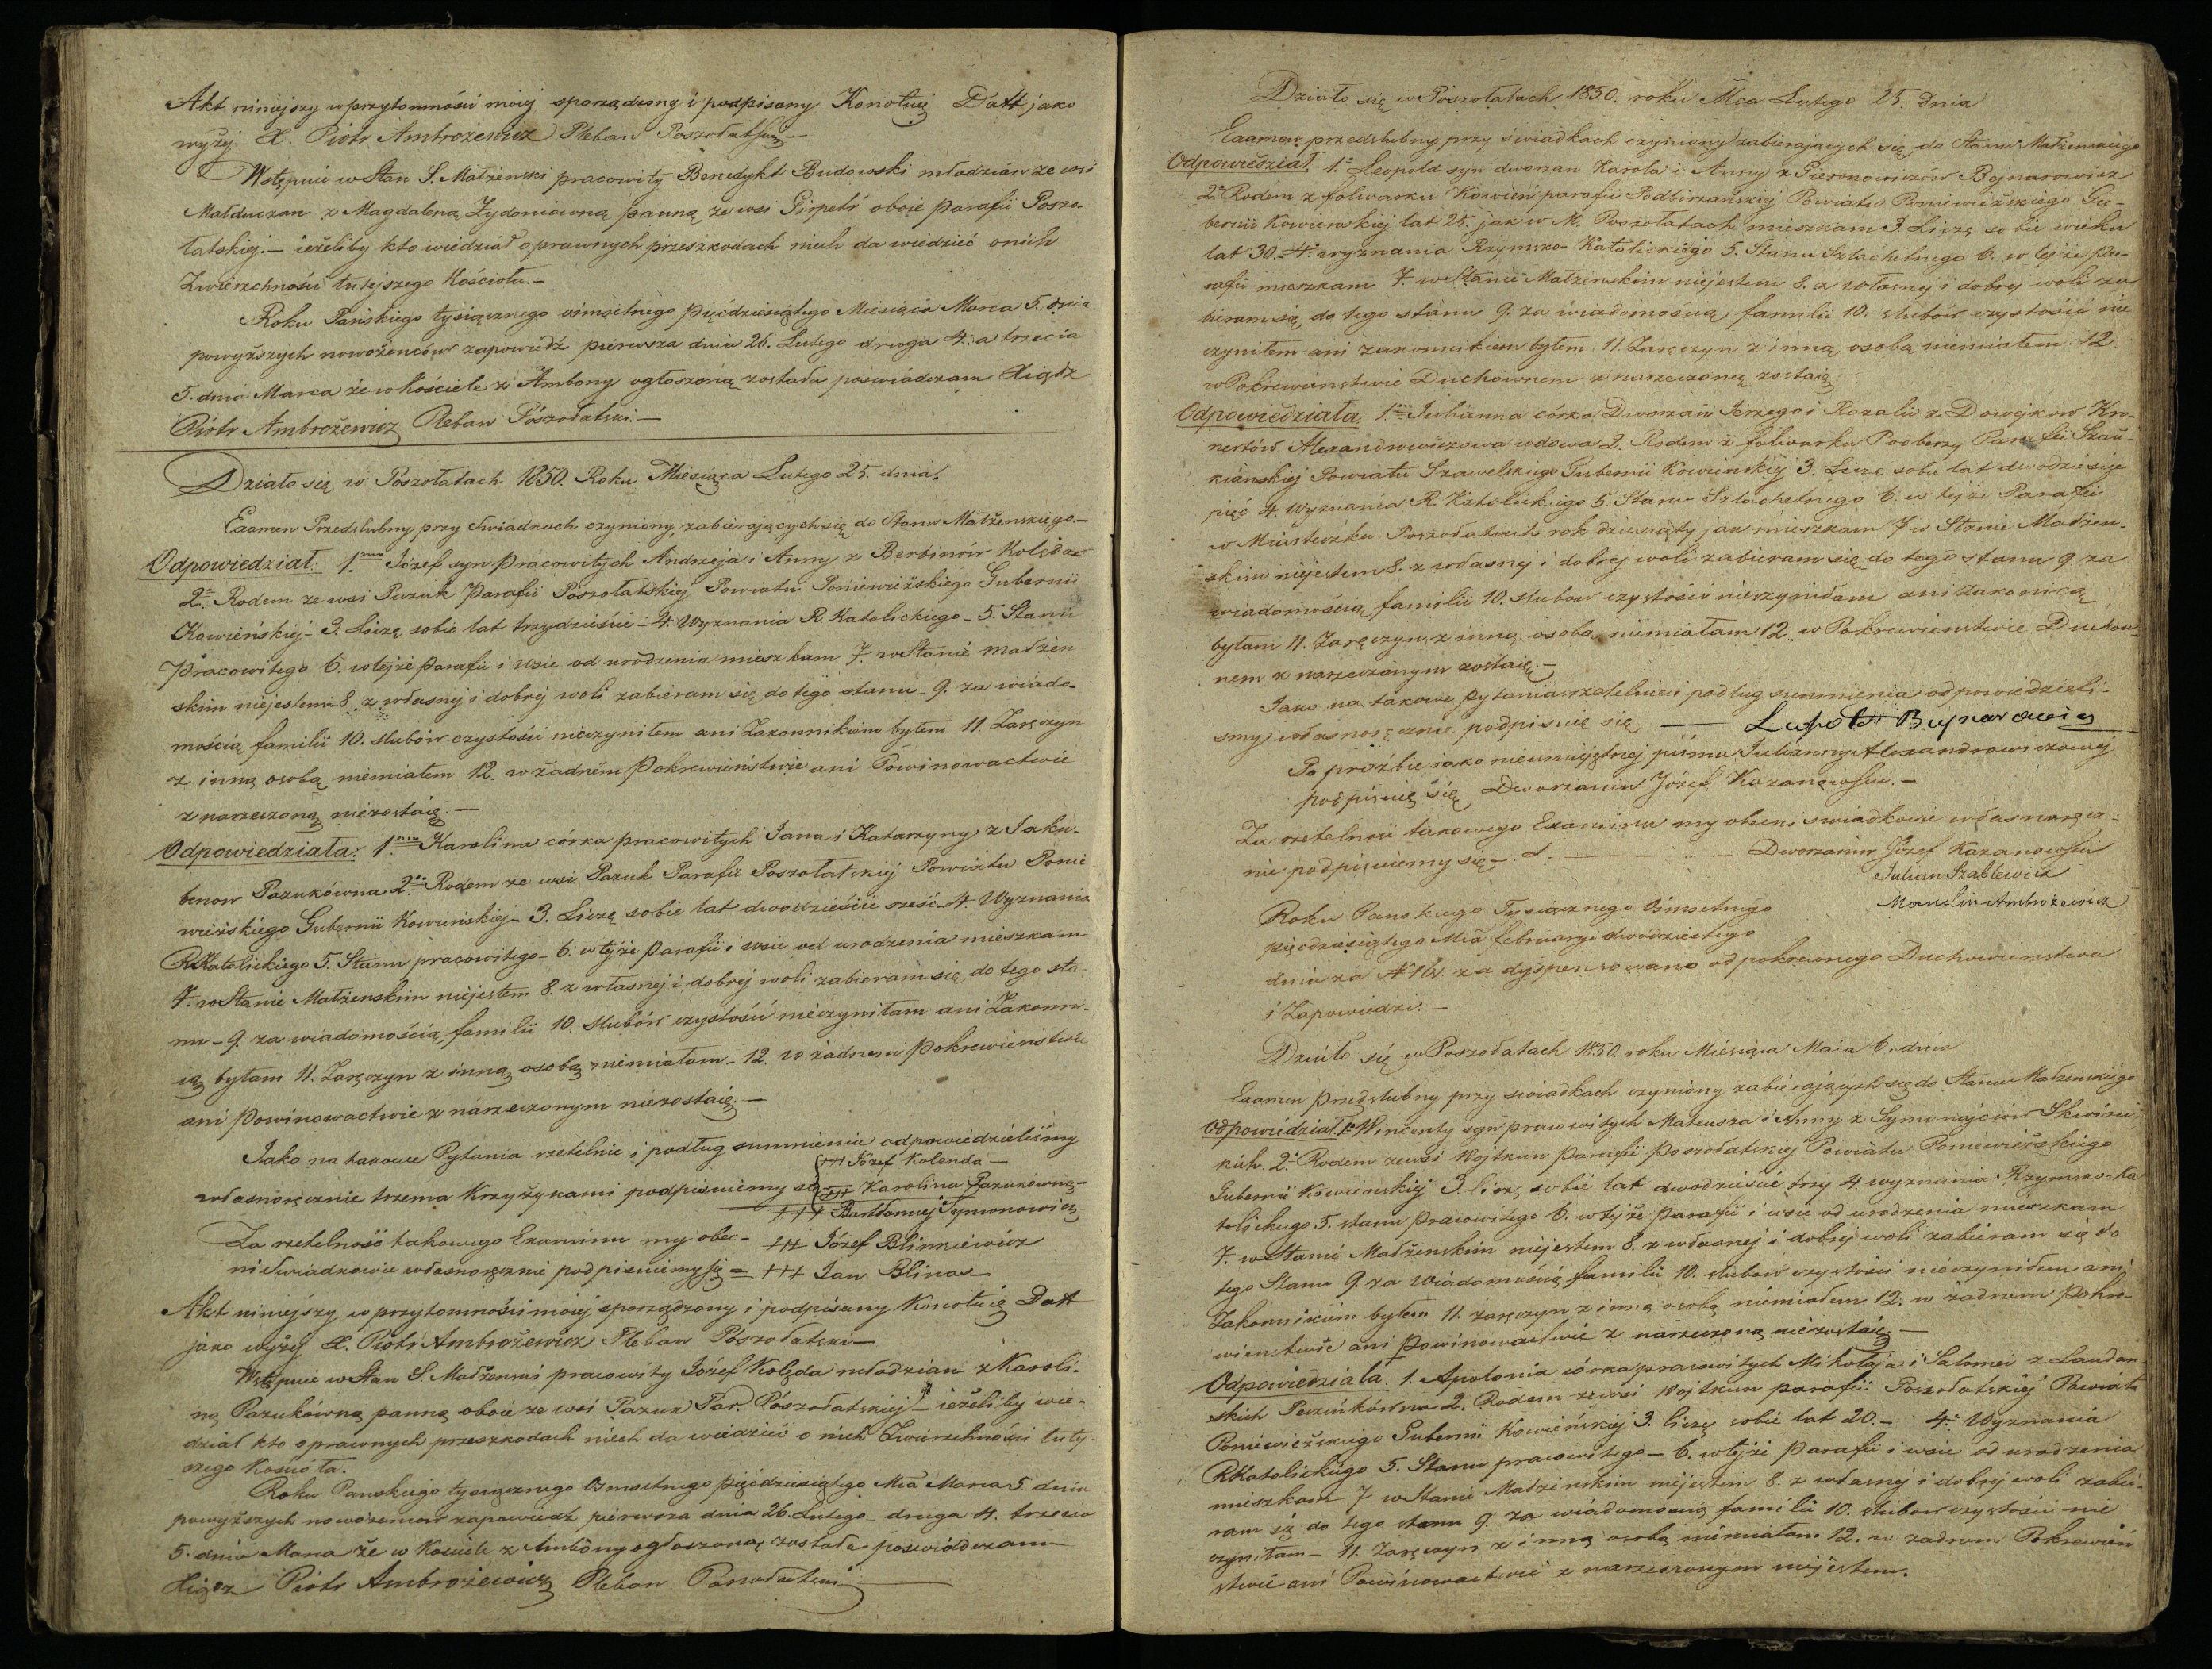 Akt niniejszy w przytomności mojej sporządzony i podpisany Konotuię Datt jako
wyżej X. Piotr Ambrożewicz Pleban Poszołatski —
Wstępuie w Stan S. Małżenski pracowity Benedykt Budowski młodzian ze wsi
Małduczan z Magdaleną Żydoniowną panną ze wsi Girpetś oboie parafii Poszo-
łatskiej. — ieżeliby kto wiedział o prawnych przeszkodach niech da wiedzieć o nich
Zwierzchności tutejszego Kościoła. —
Roku Pańskiego tysiącznego ośmsetnego pięćdziesiątego Miesiąca Marca 5. dnia
powyższych nowożeńców zapowiedź pierwsza dnia 26. Lutego druga 4. a trzecia
5. dnia Marca że w kościele z Ambony ogłoszoną została poswiadczam Xiądz
Piotr Ambrożewicz Pleban Poszołatski. —
Działo się w Poszołatach 1850. Roku Miesiąca Lutego 25. dnia.
Examen Przedślubny przy Swiadkach czyniony, zabierających się do Stanu Małżenskiego. —
Odpowiedział: 1mo Józef syn pracowitych Andrzeja i Anny z Berbinów Kolęda
2. Rodem ze wsi Pazuk Parafii Poszołatskiej Powiatu Poniewieżskiego Gubernii
Kowieńskiej — 3. Liczę sobie lat trzydzieście — 4. Wyznania R. Katolickiego — 5. Stanu
Pracowitego 6. w tejże Parafii i wsie od urodzenia mieszkam 7. w Stanie małżen
skim niejestem 8. z własnej i dobrej woli zabieram się do tego stanu — 9. za wiado-
mością familii 10. slubów czystości nieczyniłem ani Zakonnikiem byłem 11. Zaręczyn
z inną osobą niemiałem 12. w żadném Pokrewieństwie ani Powinowactwie
z narzeczoną niezostaię. —
Odpowiedziała: 1mo Karolina córka pracowitych Jana i Katarzyny z Jaku-
benow Pazukówna 2. Rodem ze wsi Pazuk Parafii Poszołatskiej Powiatu Ponie
wieżskiego Gubernii Kowieńskiej — 3. Liczę sobie lat dwodzieście sześć — 4. Wyznania
R Katolickiego 5. Stanu pracowitego — 6. w tejże Parafii i wsie od urodzenia mieszkam
7. w Stanie Małżenskim niejestem 8. z własnej i dobrej woli zabieram się do tego sta-
nu — 9. za wiadomością familii 10. slubów czystości nieczyniłam ani Zakonni-
cą byłam 11. Zaręczyn z inną osobą niemiałam — 12. w żadnem pokrewieństwie
ani powinowactwie z narzeczonym niezostaię. —
Jako na takowe Pytania rzetelnie i podług sumnienia odpowiedzieliśmy
+++ Józef Kolenda —
własnoręcznie trzema Krzyżykami podpisuiemy się +++ Karolina Pazukówna —
+++ Bartłomiej Symonowicz
Za rzetelność takowego Examinu my obec- +++ Józef Blinniewicz
ni Swiadkowie własnoręcznie podpisuiemy się = +++ Jan Blinas
Akt niniejszy w przytomności mojej sporządzony i podpisany Konotuię Datt
jako wyżej X. Piotr Ambrożewicz Pleban Poszołatski —
Wstępuie w Stan S. Małżenski pracowity Józef Kolęda młodzian z Karoli-
ną Pazukówną panną oboie ze wsi Pazuk Par. Poszołatskiej — ieżeliby wie-
dział kto o prawnych przeszkodach niech da wiedzieć o nich Zwierzchności tutej
szego Kościoła.
Roku Panskiego tysiącznego Osmsetnego pięćdziesiątego Mca Marca 5. dnia
powyższych nowożencow zapowiedź pierwsza dnia 26. Lutego — druga 4. trzecia
5. dnia Marca że w Kosciele z Ambony ogłoszoną została poswiadczam
Xiądz Piotr Ambrożewicz Pleban Poszołatski —
Działo się w Poszołatach 1850. roku Mca Lutego 25. dnia
Examen przedslubny przy świadkach czyniony zabierających się do Stanu Małżenskiego
Odpowiedział 1. Leopold syn dworzan Karola i Anny z Gieronowiczów Bojnarowicz
2. Rodem z folwarku Kowień parafii Podbirżańskiej Powiatu Poniewieżskiego Gu-
bernii Kowieńskiej lat 25. jak w M. Poszołatach mieszkam 3. Liczę sobie wieku
lat 30. — 4. wyznania Rzymsko-Katolickiego 5. Stanu Szlachetnego 6. w tejże pa-
rafii mieszkam 7. w Stanie Małżenskim niejestem 8. z własnej i dobrej woli za
bieram się do tego stanu 9. za wiadomością familii 10. slubów czystości nie
czyniłem ani zakonnikiem byłem 11. Zaręczyn z inną osobą niemiałem 12.
w Pokrewienstwie Duchownem z narzeczoną zostaię
Odpowiedziała 1. Julianna córka Dworzan Jerzego i Rozalii z Dowejkow Kro-
nertów Alexandrowiczowa wdowa 2. Rodem z folwarku Podberzy Parafii Szau-
kiańskiej Powiatu Szawelskiego Gubernii Kowieńskiej 3. Liczę sobie lat dwodzieście
pięć 4. Wyznania R. Katolickiego 5. Stanu Szlachetnego 6. w tejże Parafii
w Miasteczku Poszołatach rok dziesiąty jak mieszkam 7 w Stanie Małżen-
skim niejestem 8. z własnej i dobrej woli zabieram się do tego stanu 9. za
wiadomością familii 10. slubow czystości nieczyniłam ani zakonnicą
byłam 11. Zaręczyn z inną osobą niemiałam 12. w Pokrewienstwie Duchow-
nem z narzeczonym zostaię. —
Jako na takowe pytania rzetelnie i podług sumnienia odpowiedzieli-
smy własnoręcznie podpisuię się — Leopold Bujnarowicz
Po proźbie jako nieumiejętnej pisma Julianny Alexandrowiczowej
podpisuię się Dworzanin Józef Kazanowski. —
Za rzetelność takowego Examinu my obecni swiadkowie własnoręcz-
nie podpisuiemy się — Dworzanin Józef Kazanowski
Julian Szablewicz
Marcelin Ambrożewicz
Roku Panskiego Tysiącznego Ośmsetnego
pięćdziesiątego Mca februaryi dwodziestego
dnia za N zadyspensowano od pokrewnego Duchowieństwa
i Zapowiedzi. —
Działo się w Poszołatach 1850. roku Miesiąca Maia 6. dnia
Examen przedslubny przy swiadkach czyniony zabierających się do Stanu Małżenskiego
Odpowiedział 1. Wincenty syn pracowitych Mateusza i Anny z Symonajciow Skwirn-
kich. 2. Rodem ze wsi Wojtkun Parafii Poszołatskiej Powiatu Poniewieżskiego
Gubernii Kowieńskiej 3. liczę sobie lat dwodzieście trzy 4. wyznania Rzymsko-Ka
tolickiego 5. stanu Pracowitego 6. w tejże Parafii i wsie od urodzenia mieszkam
7. w Stanie Małżenskim niejestem 8. z własnej i dobrej woli zabieram się do
tego Stanu 9. za wiadomością familii 10. slubow czystości nieczyniłem ani
Zakonnikiem byłem 11. zaręczyn z inną osobą niemiałem 12. w żadnem pokre-
wienstwie ani Powinowactwie z narzeczoną niezostaię —
Odpowiedziala. 1. Apolonia córka pracowitych Mikołaja i Salomei z Laudan-
skich Pezińkówna 2. Rodem ze wsi Wojtkun parafii Poszołatskiej Powiatu
Poniewieżskiego Gubernii Kowieńskiej 3. liczę sobie lat 20. — 4. Wyznania
R Katolickiego 5. Stanu pracowitego — 6. w tejże Parafii i wsie od urodzenia
mieszkam 7. w Stanie Małżenskim niejestem 8. z własnej i dobrej woli zabie-
ram się do tego stanu 9. za wiadomością familii 10. slubow czystości nie
czyniłam — 11. Zaręczyn z inną osobą niemiałam 12. w żadnem Pokrewien
stwie ani Powinowactwie z narzeczonym niejestem.